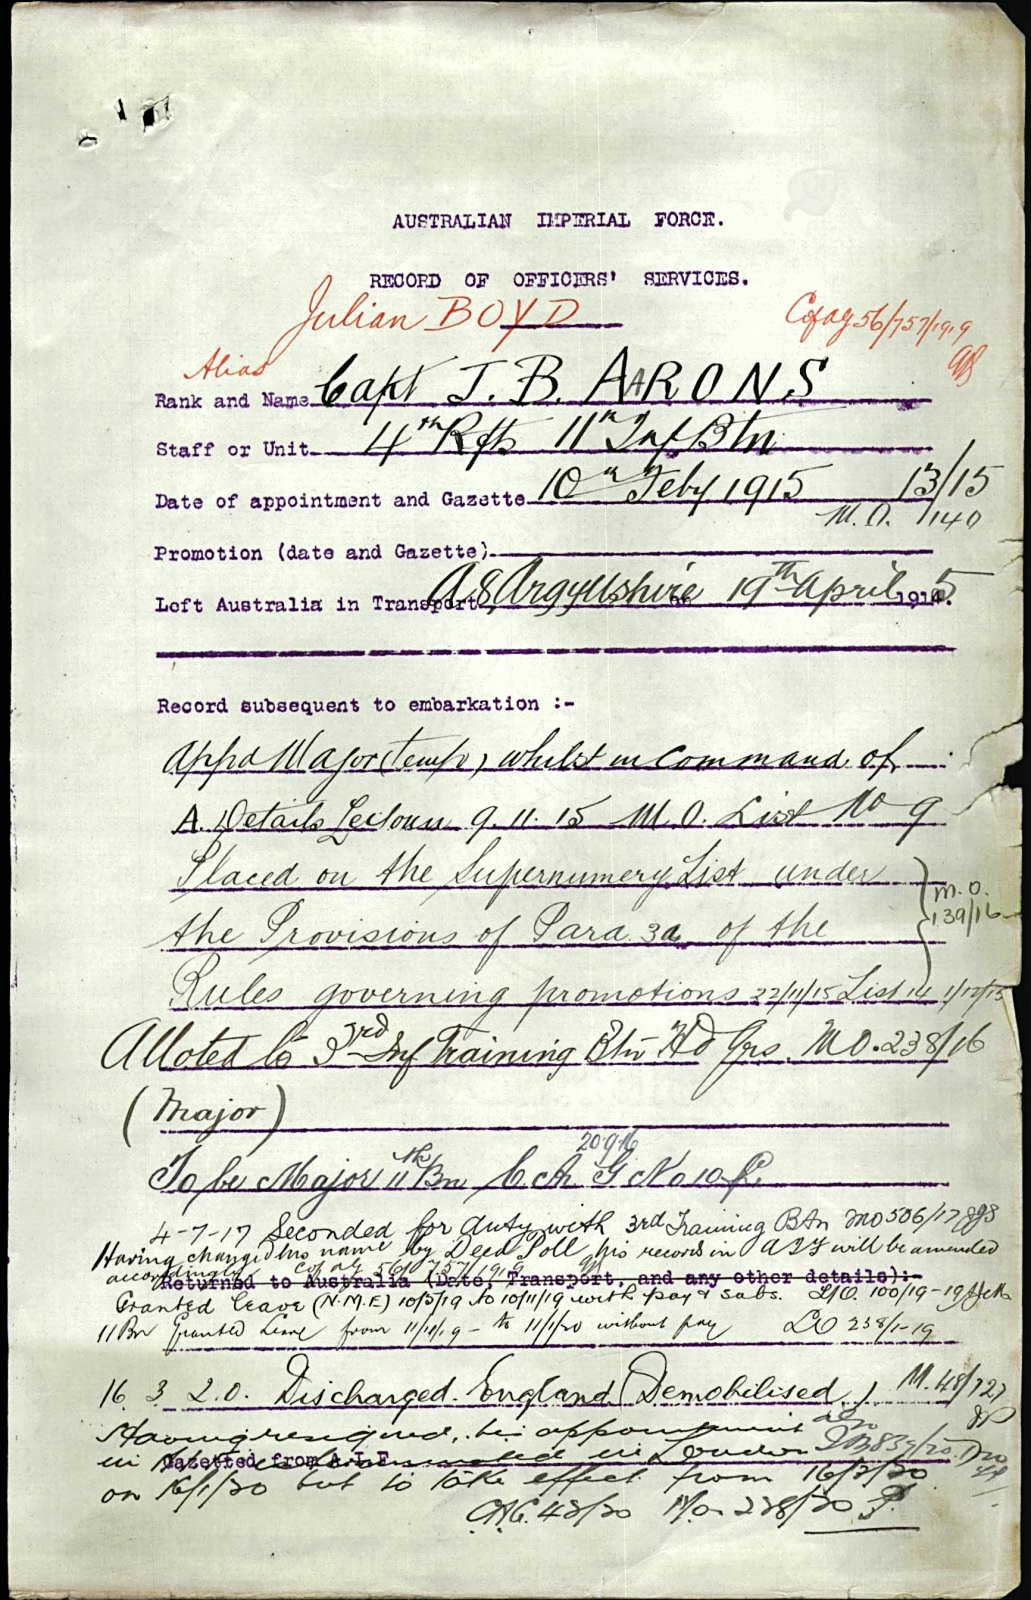 AUSTRALIAN IMPERIAL FORCE.
RECORD OF OFFICERS' SERVICES.
Julian BOYD
C of AG 56/757/1919
Alias
Rank and Name Capt J. B. AARONS
Staff or Unit 4th Rfts 11th Inf Btn
Date of appointment and Gazette 10th Feby 1915 13/15
M.O. 140
Promotion (date and Gazette)
Left Australia in Transport A8 Argyllshire 19th April 1915.
Record subsequent to embarkation :-
Appd Major (Temp) whilst in Command of
A. Details 9.11.15 M.O. List No 9
Placed on the Supernumery List under
M.O.
139/16
the Provisions of Para 3a of the
Rules governing promotions 22/11/15 List 14 1/12/15
Alloted to 3rd Inf Training Btn Hd Qrs. M O. 238/16
(Major)
20 9 16
To be Major 11th Bn C. A G No 10
4-7-17 Seconded for duty with 3rd Training Btn MO 506/17
Having changed his name by Deed Poll, his records in AIF will be amended
accordingly C of AG 56/757/1919
Returned to Australia (Date, Transport, and any other details):-
Granted leave (N.M.E) 10/5/19 to 10/11/19 with pay & subs. 100/19-19
11 Bn Granted Leave from 11/11/19 - to 11/1/20 without pay 238/1-19
16 3 20. Discharged. England (Demobilised) M. 48/727
Having resigned, his appointment
in the terminated in London
Gazetted from A.I.F.
on 16/1/20 but to take effect from 16/3/20
C.A.G. 43/20 M.O. 238/20